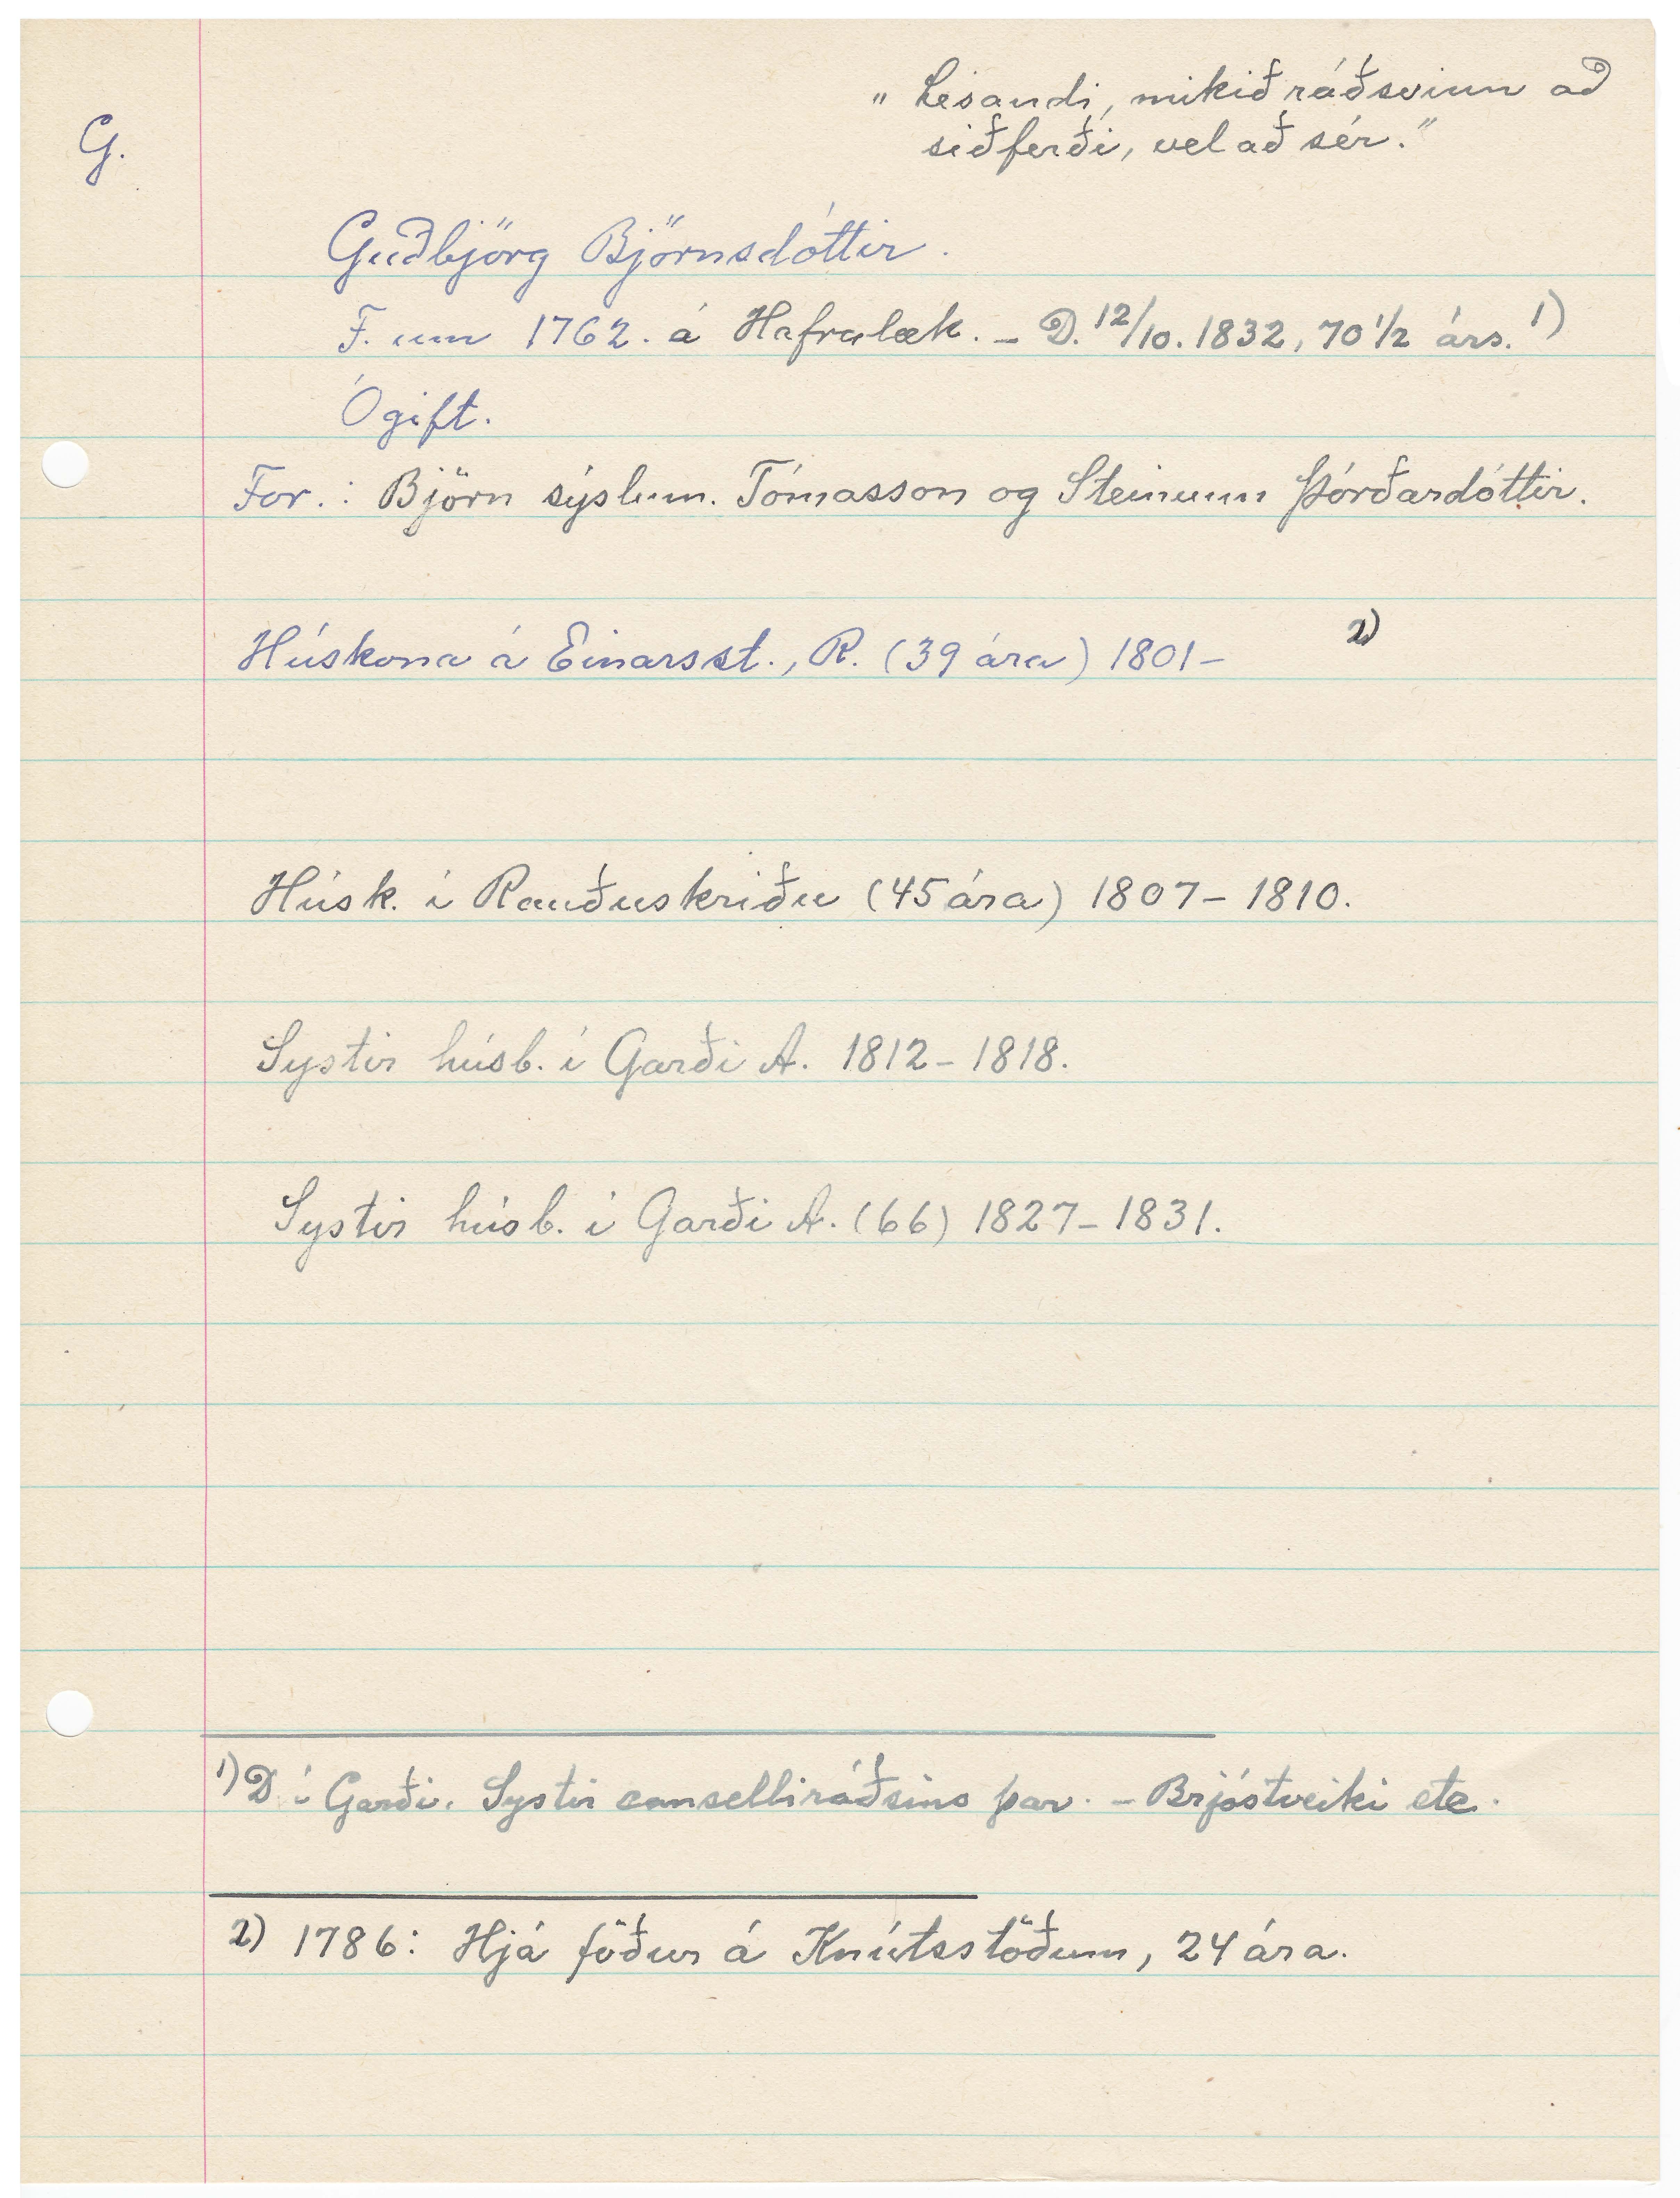 „Lesandi, mikið ráðsvinn að
siðferði, vel að sér.“
G.
Guðbjörg Björnsdóttir.
F. um 1762. á Hafralæk. – D. 12/10. 1832, 70 1/2 árs. 1)
Ógift.
For.: Björn sýslum. Tómasson og Steinunn Þórðardóttir.
Húskona á Einarsst., R. (39 ára) 1801– 2)
Húsk. í Rauðuskriðu (45 ára) 1807–1810.
Systir húsb. í Garði A. 1812–1818.
Systir húsb. í Garði A. (66) 1827–1831.
1) D í Garði. Systir canselliráðsins þar. – Brjóstveiki etc.
2) 1786: Hjá föður á Knútsstöðum, 24 ára.